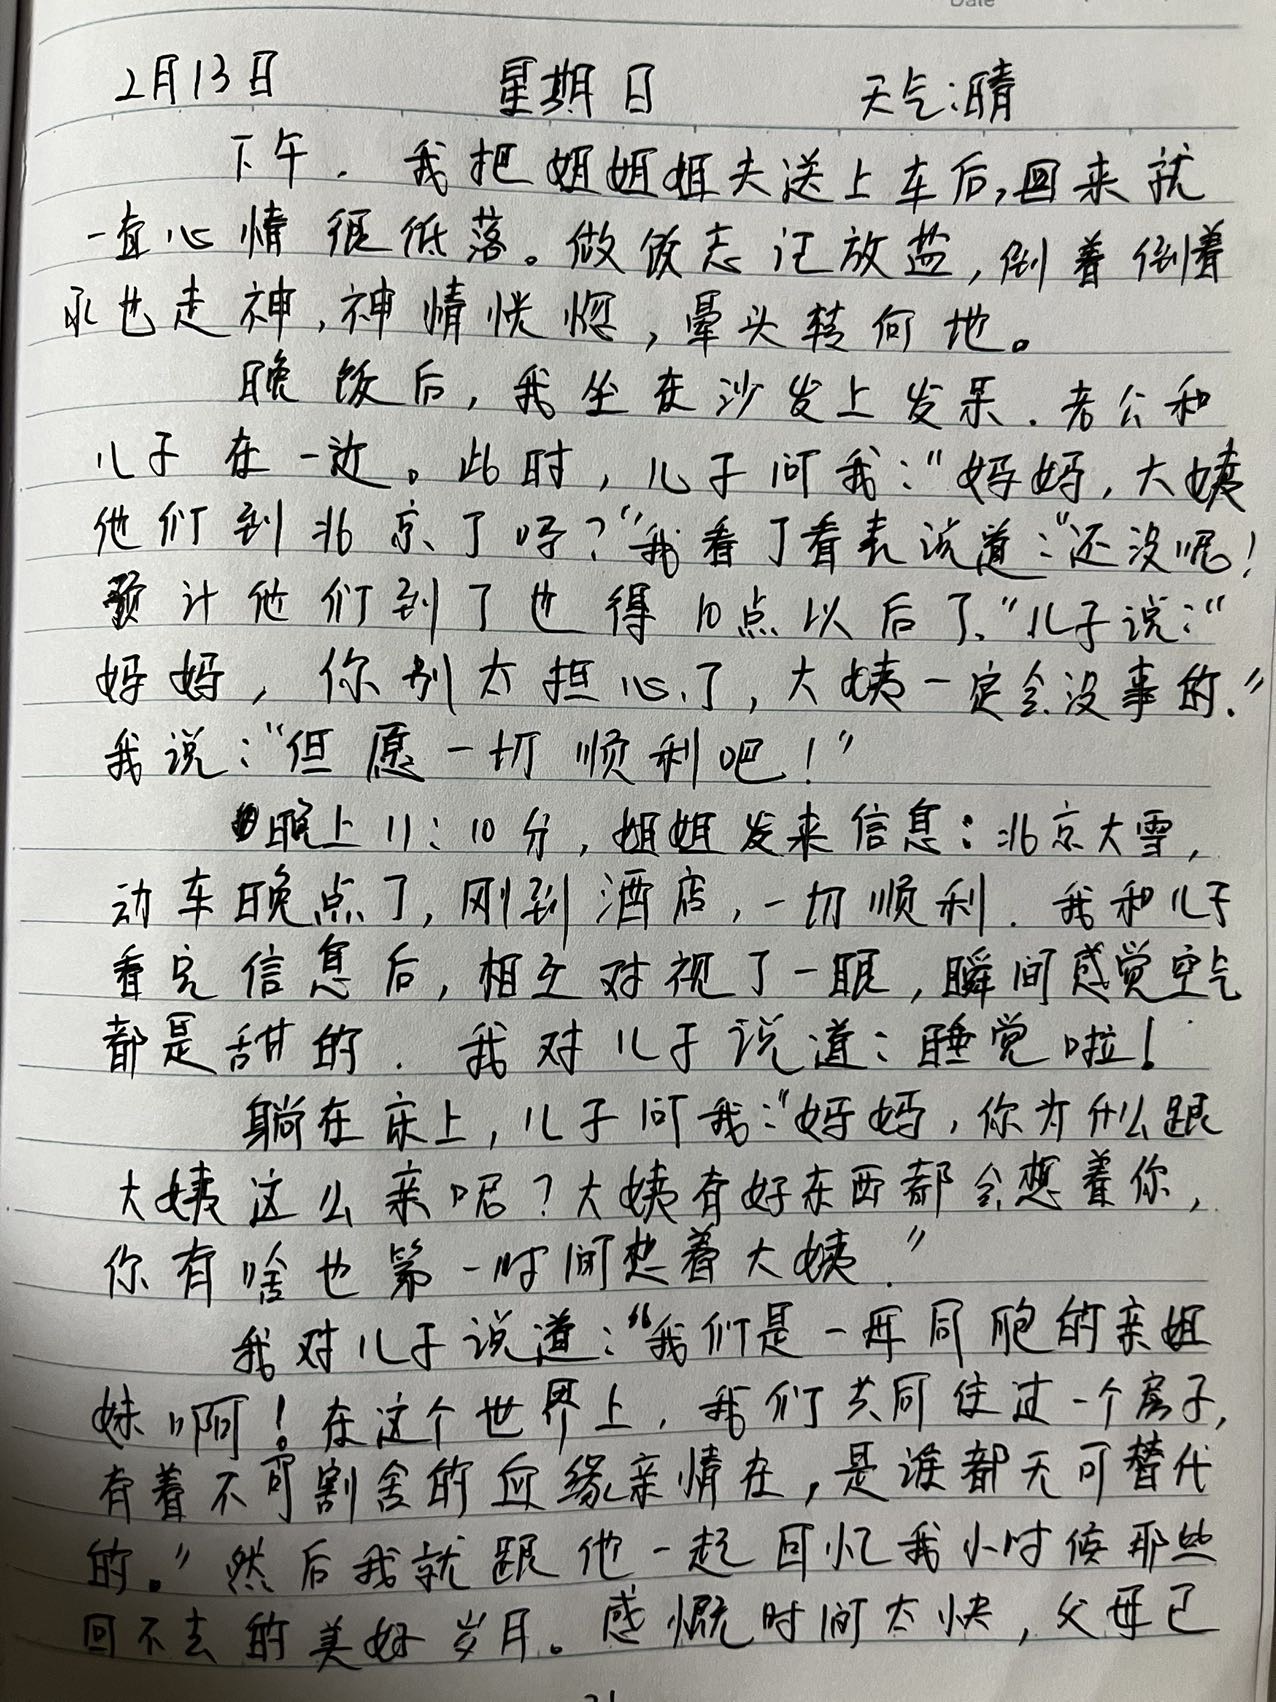 Date
2月13日 星期日 天气:晴
下午.我把姐姐姐夫送上车后,回来就
一直心情很低落。做饭忘记放盐,倒着倒着
水也走神,神情恍惚,晕头转向地。
晚饭后,我坐在沙发上发呆.老公和
儿子在一边。此时,儿子问我:"妈妈,大姨
他们到北京了吗?"我看了看表说道:"还没呢!
预计他们到了也得10点以后了."儿子说:"
妈妈,你别太担心了,大姨一定会没事的."
我说:"但愿一切顺利吧!"
晚上11:10分,姐姐发来信息:北京大雪,
动车晚点了,刚到酒店,一切顺利.我和儿子
看完信息后,相互对视了一眼,瞬间感觉空气
都是甜的.我对儿子说道:睡觉啦!
躺在床上,儿子问我:"妈妈,你为什么跟
大姨这么亲呢?大姨有好东西都会想着你,
你有啥也第一时间想着大姨."
我对儿子说道:"我们是一母同胞的亲姐
妹啊!在这个世界上,我们共同住过一个房子,
有着不可割舍的血缘亲情在,是谁都无可替代
的。"然后我就跟他一起回忆我小时候那些
回不去的美好岁月。感慨时间太快,父母已